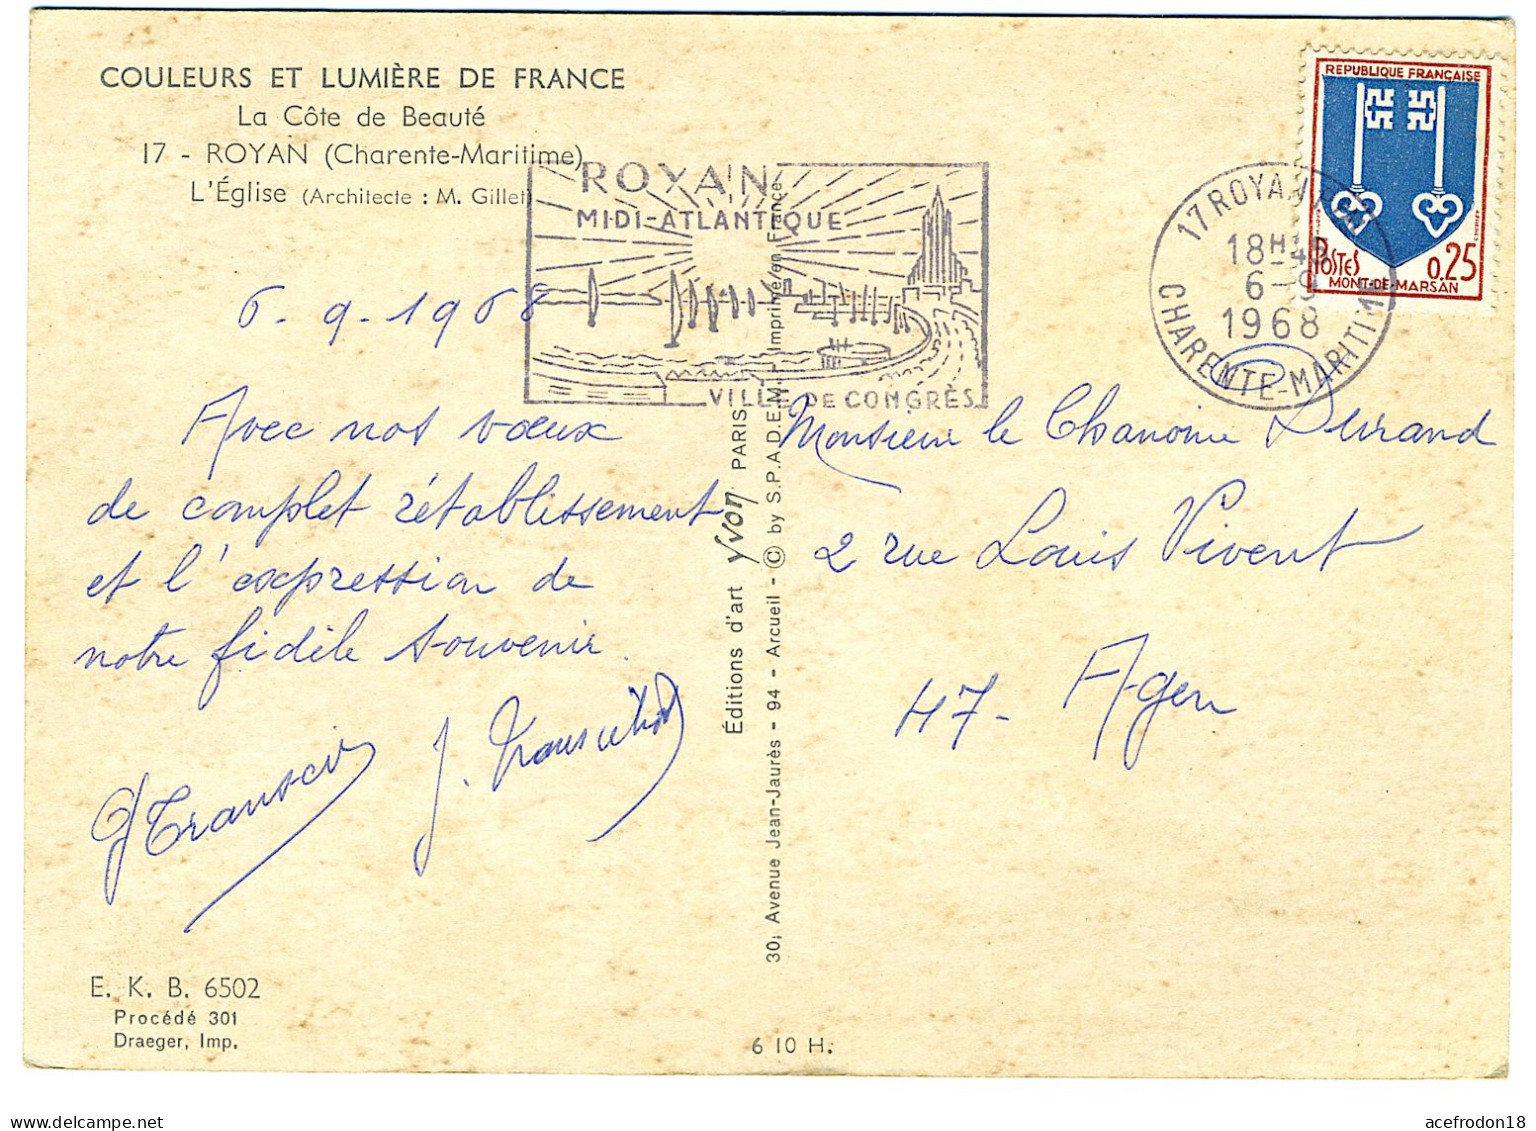 COULEURS ET LUMIÈRE DE FRANCE
La Côte de Beauté
17 - ROYAN (Charente-Maritime)
L'Église (Architecte : M. Gillet)
ROYAN
MIDI-ATLANTIQUE
VILLE DE CONGRÈS
17 ROYAN
18H
6-9
1968
CHARENTE-MARITIME
REPUBLIQUE FRANÇAISE
POSTES
0,25
MONT-DE-MARSAN
6.9.1968
Avec nos vœux
de complet rétablissement
et l'expression de
notre fidèle souvenir.
J.
Éditions d'art yvon PARIS
30, Avenue Jean-Jaurès - 94 - Arcueil - © by S.P.A.D.E.M. - Imprimé en France
Monsieur le Chanoine Durand
2 rue Louis Vivent
47- Agen
E. K. B. 6502
Procédé 301
Draeger, Imp.
6 10 H.
acefrodon18